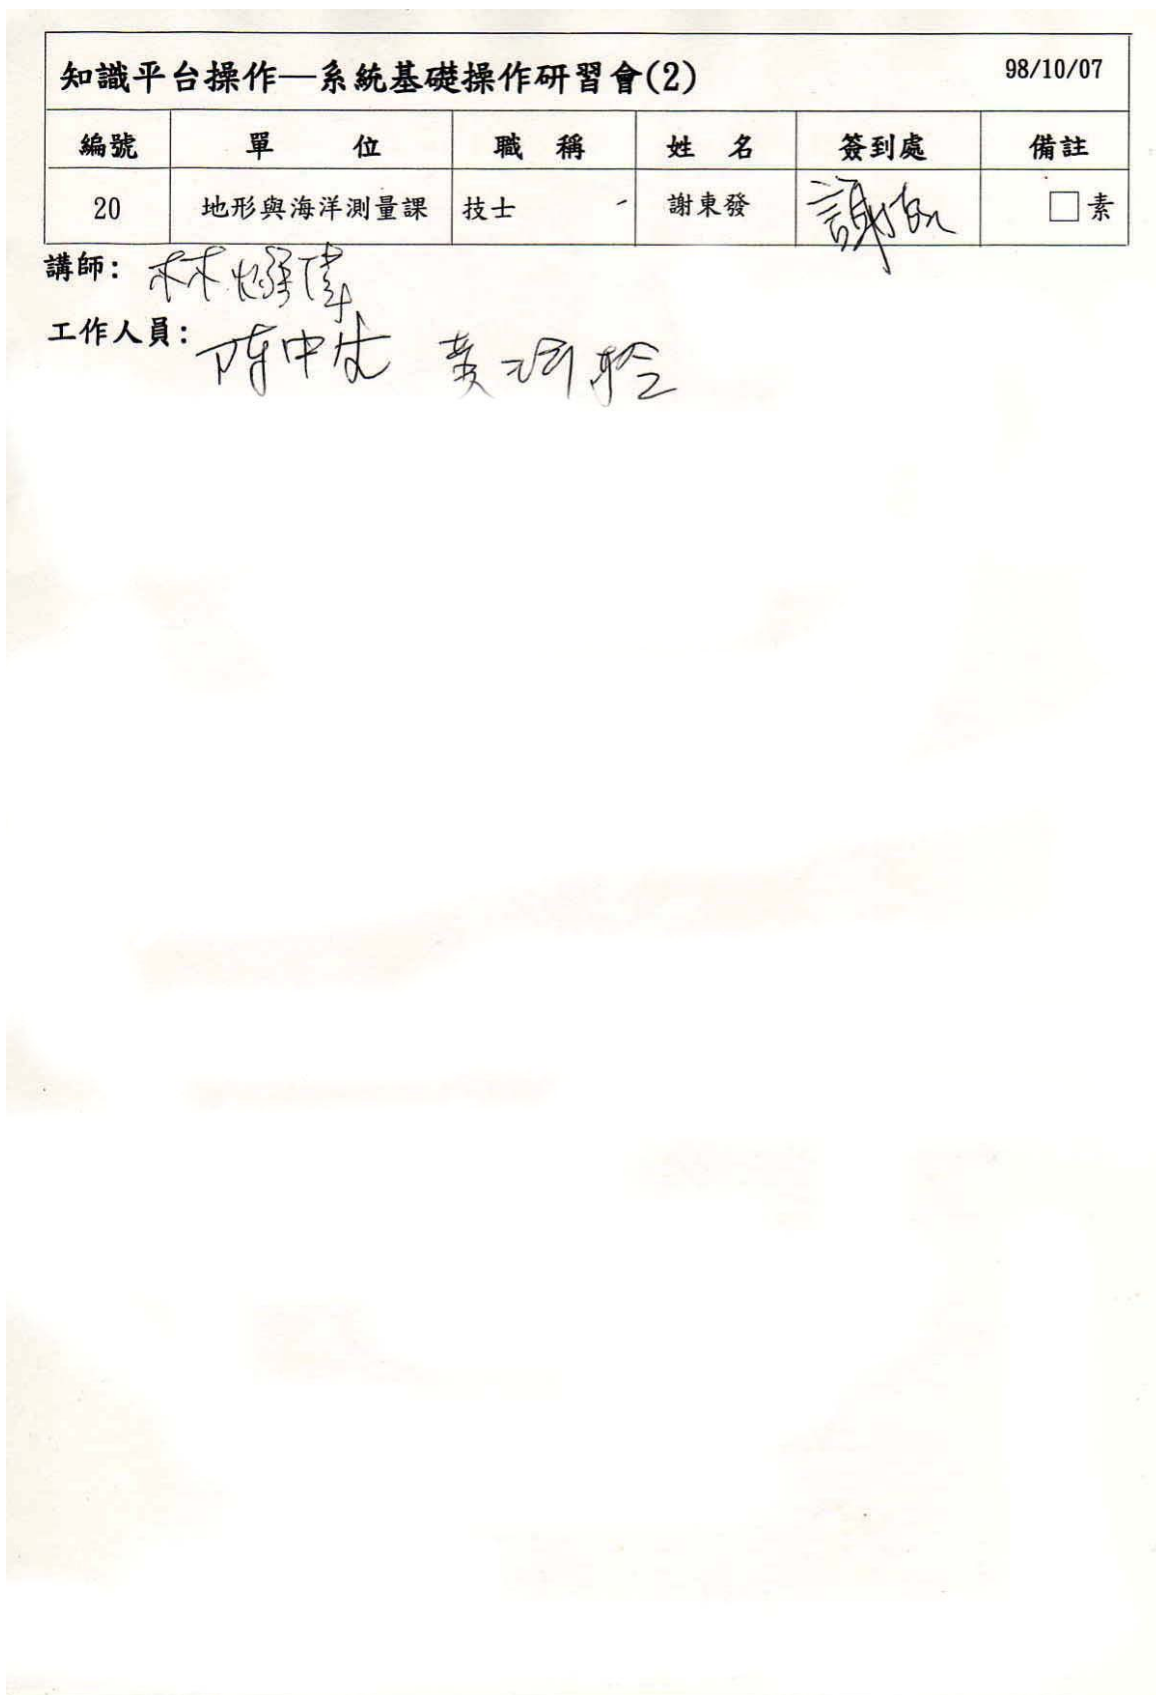 知識平台操作—系統基礎操作研習會(2) 98/10/07
編號 單位 職稱 姓名 簽到處 備註
20 地形與海洋測量課 技士 謝東發 □素
講師: 林
工作人員: 陳中 黃